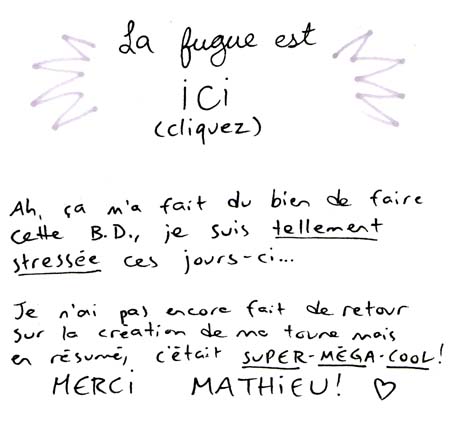 La fugue est
ici
(cliquez)
Ah, ça m'a fait du bien de faire
cette B.D., je suis tellement
stressée ces jours-ci...
Je n'ai pas encore fait de retour
sur la création de ma toune mais
en résumé, c'était SUPER-MÉGA-COOL!
MERCi MATHiEU! ♡